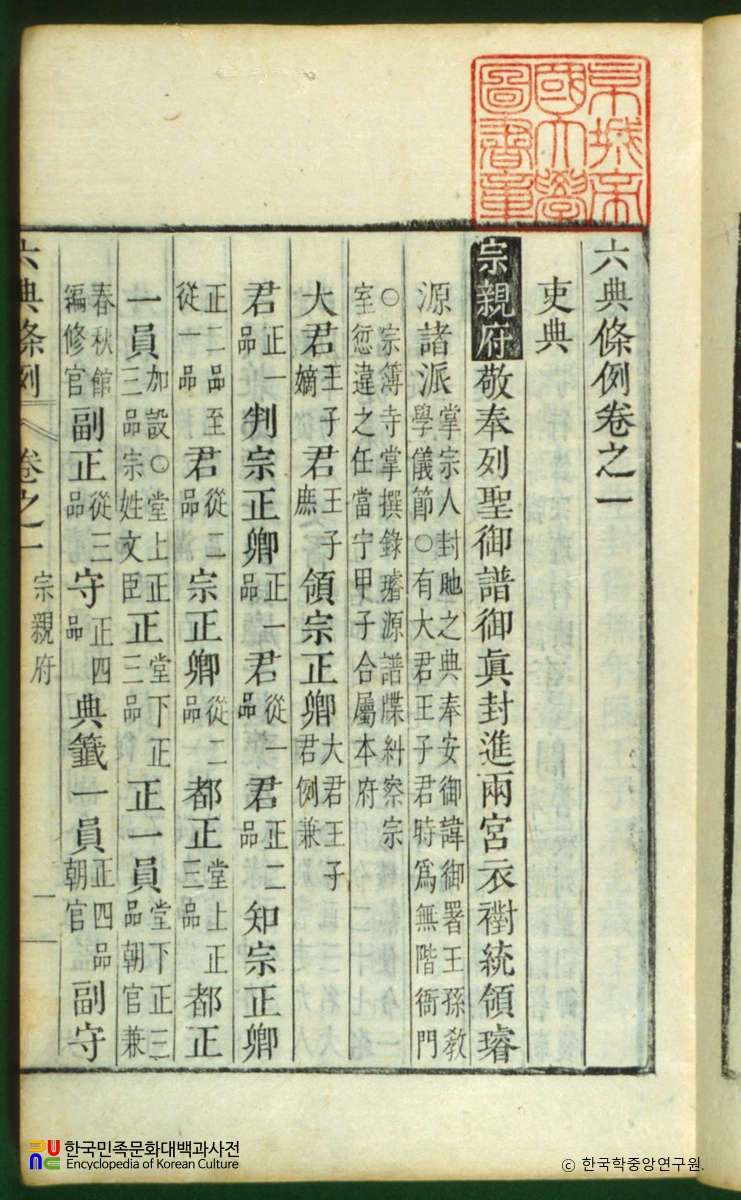 京城帝
國大學
圖書章
六典條例卷之一
吏典
宗親府敬奉列聖御譜御眞封進兩宮衣襨統領璿
源諸派掌宗人封貤之典奉安御諱御署王孫敎學儀節○有大君王子君時爲無階衙門
○宗簿寺掌撰錄璿源譜牒糾察宗室愆違之任當宁甲子合屬本府
大君王子嫡君王子庶領宗正卿大君王子君例兼
君正一品判宗正卿正一品君從一品君正二品知宗正卿
正二品至從一品君從二品宗正卿從二品都正堂上正三品都正
一員加設○堂上正三品宗姓文臣正堂下正三品正一員堂下正三品朝官兼
春秋館編修官副正從三品守正四品典籤一員正四品朝官副守
六典條例 卷之一 宗親府 一
한국민족문화대백과사전
Encyclopedia of Korean Culture
ⓒ 한국학중앙연구원.